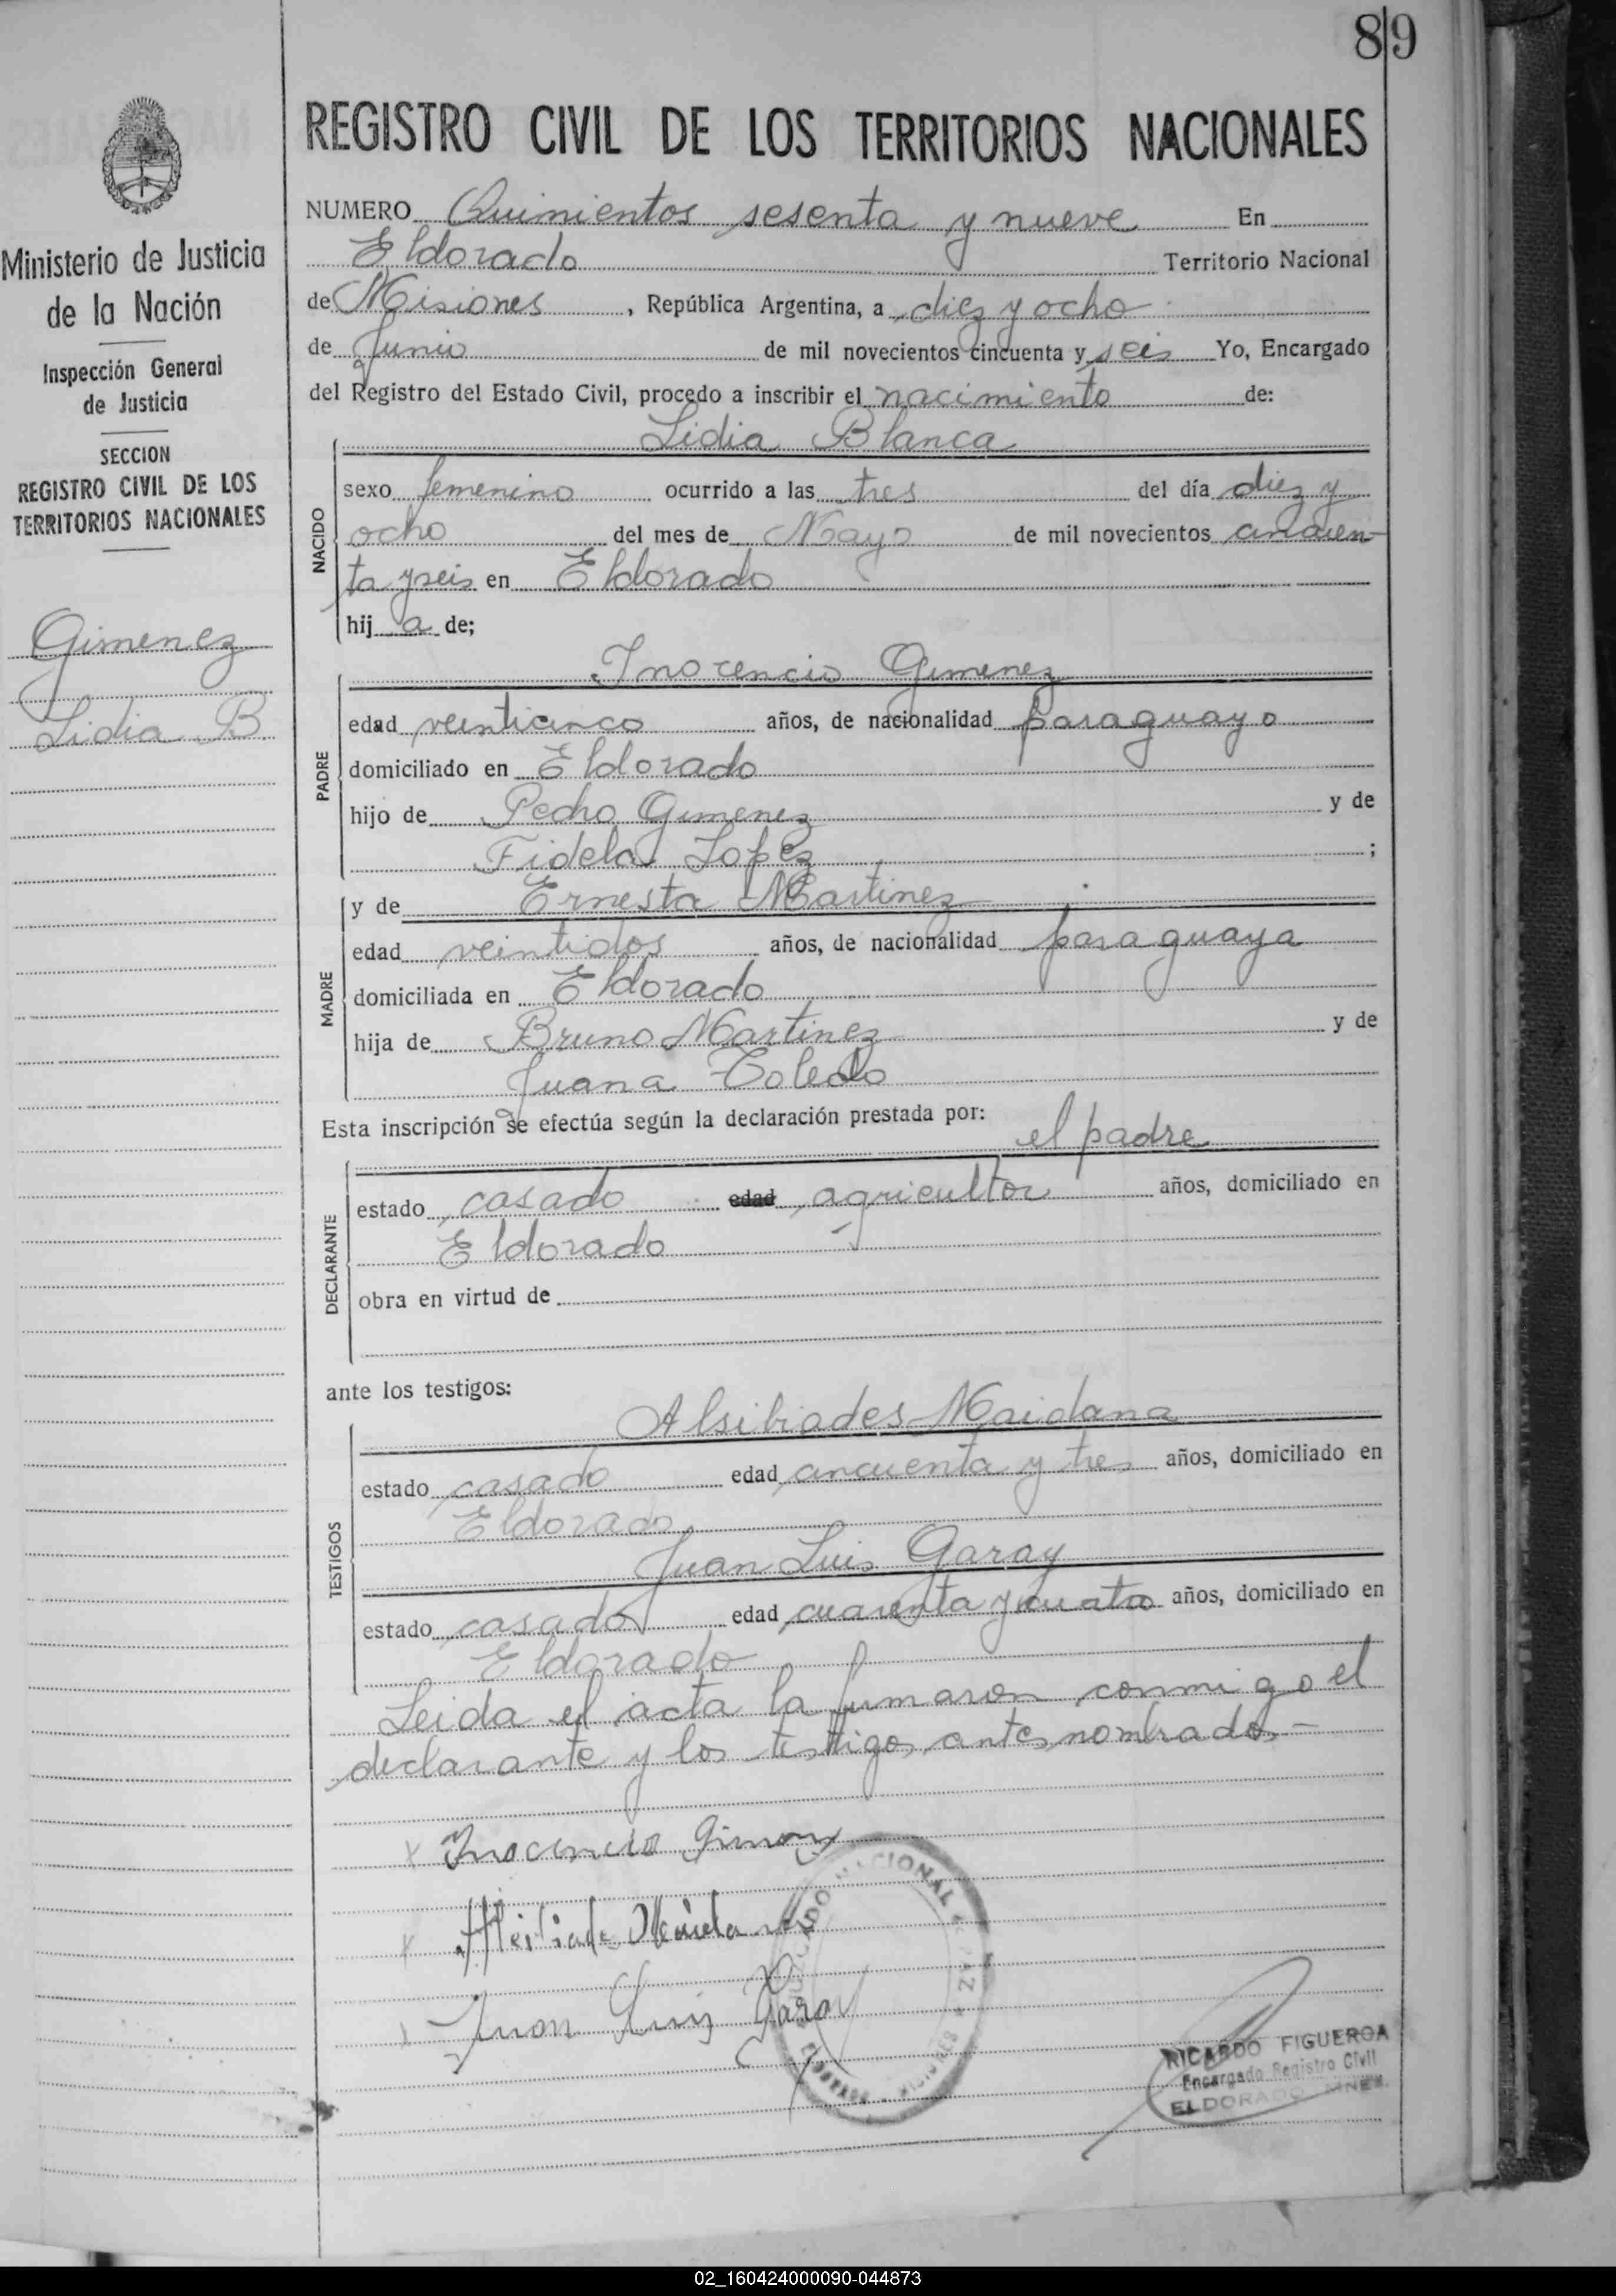 89
REGISTRO CIVIL DE LOS TERRITORIOS NACIONALES
Ministerio de Justicia
de la Nación
Inspección General
de Justicia
SECCION
REGISTRO CIVIL DE LOS
TERRITORIOS NACIONALES
Gimenez
Lidia B
NUMERO Quinientos sesenta y nueve En
Eldorado Territorio Nacional
de Misiones, República Argentina, a diez y ocho
de Junio de mil novecientos cincuenta y seis Yo, Encargado
del Registro del Estado Civil, procedo a inscribir el nacimiento de:
Lidia Blanca
NACIDO
sexo femenino ocurrido a las tres del día diez y
ocho del mes de Mayo de mil novecientos cincuen-
ta y seis en Eldorado
hij a de;
Inocencio Gimenez
PADRE
edad veinticinco años, de nacionalidad paraguayo
domiciliado en Eldorado
hijo de Pedro Gimenez y de
Fidela Lopez ;
y de Ernesta Martinez
MADRE
edad veintidos años, de nacionalidad paraguaya
domiciliada en Eldorado
hija de Bruno Martinez y de
Juana Toledo
Esta inscripción se efectúa según la declaración prestada por:
el padre
DECLARANTE
estado casado edad agricultor años, domiciliado en
Eldorado
obra en virtud de
ante los testigos:
Alsibiades Maidana
TESTIGOS
estado casado edad cincuenta y tres años, domiciliado en
Eldorado
Juan Luis Garay
estado casado edad cuarenta y cuatro años, domiciliado en
Eldorado
Leida el acta la firmaron conmigo el
declarante y los testigos antes nombrados.-
x Inocencio Gimenez
x Alsibiades Maidana
x Juan Luis Garay
NACIONAL
MISIONES
ELDORADO
RICARDO FIGUEROA
Encargado Registro Civil
ELDORADO MNES.
02_160424000090-044873